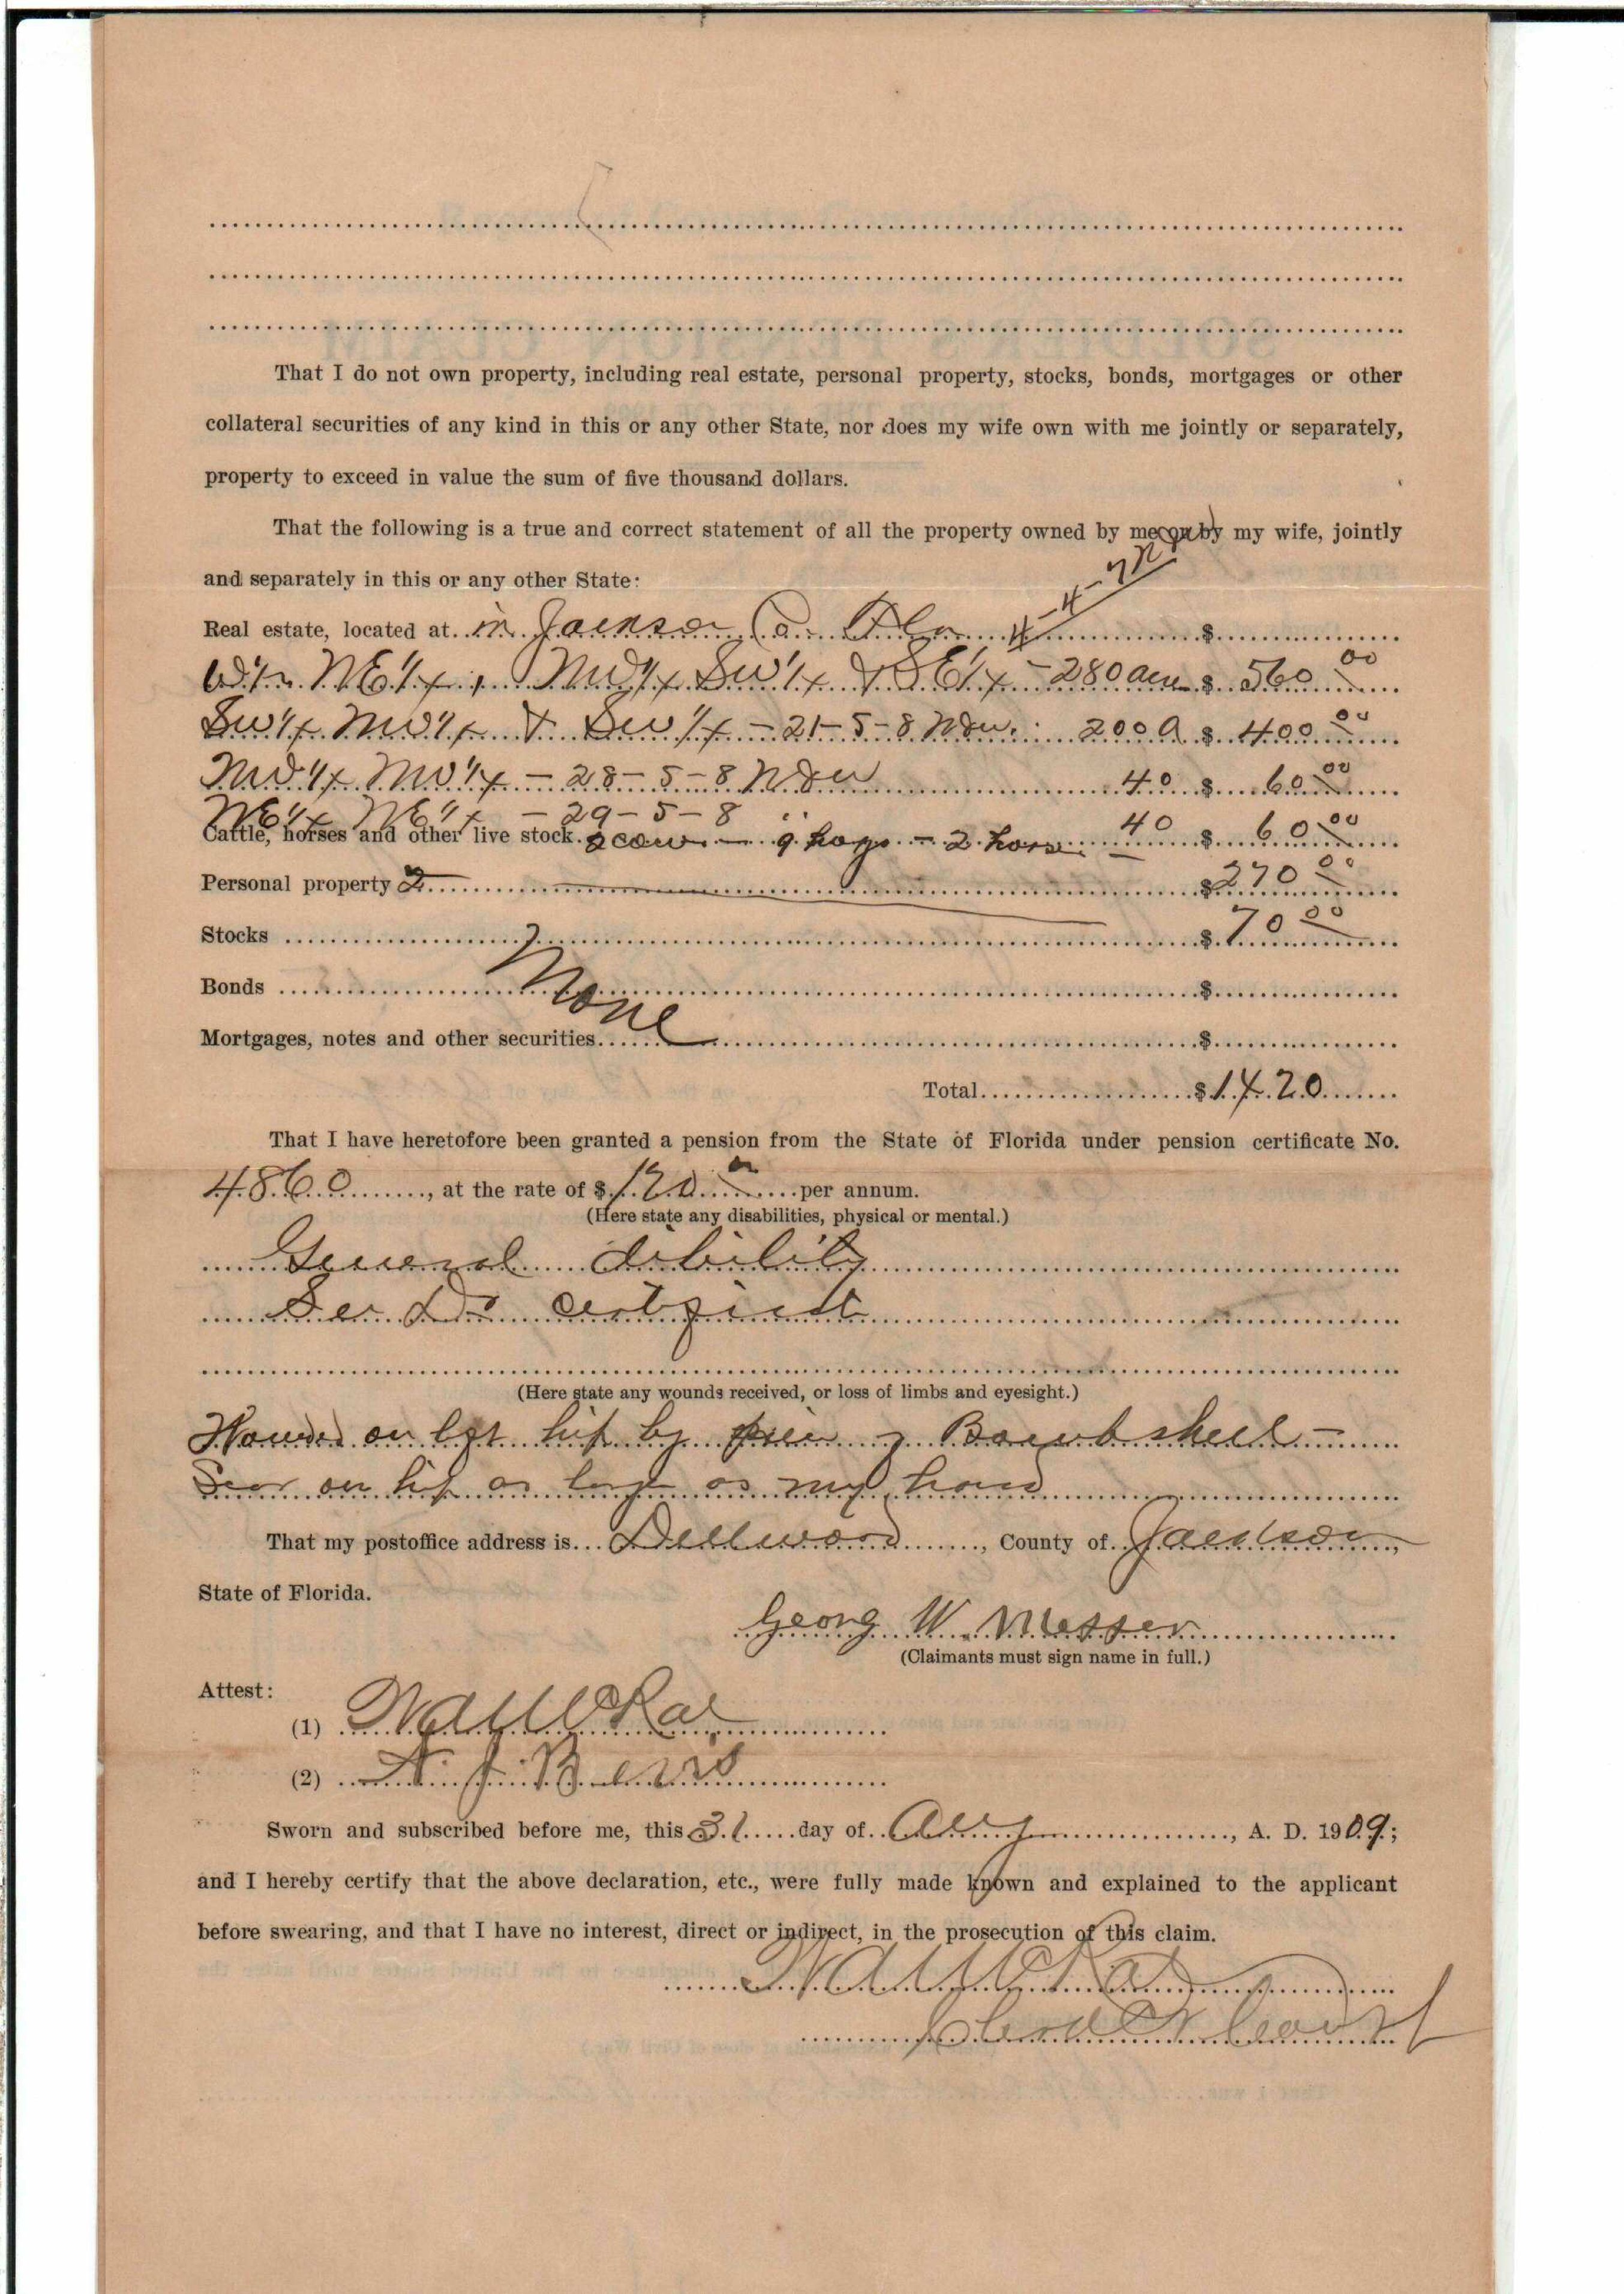 That I do not own property, including real estate, personal property, stocks, bonds, mortgages or other
collateral securities of any kind in this or any other State, nor does my wife own with me jointly or separately,
property to exceed in value the sum of five thousand dollars.
That the following is a true and correct statement of all the property owned by me or by my wife, jointly
and separately in this or any other State:
Real estate, located at in Jackson Co. Fla $
W½ NE¼, NW¼ SW¼ & SE¼ - 280 acres $ 560 00
SW¼ NW¼ & SW¼ - 21-5-8 N&W. 200 A $ 400 00
NW¼ NW¼ - 28-5-8 N&W 40 $ 60 00
NE¼ NE¼ - 29-5-8 40 $ 60 00
Cattle, horses and other live stock. 2 cow - 9 hogs - 2 horse - $270 00
Personal property $70 00
Stocks $
Bonds None $
Mortgages, notes and other securities $
Total $1420
That I have heretofore been granted a pension from the State of Florida under pension certificate No.
4860, at the rate of $120 00 per annum.
(Here state any disabilities, physical or mental.)
General debility
See Dr certificate
(Here state any wounds received, or loss of limbs and eyesight.)
Wounded on left hip by piece of Bombshell -
Scar on hip as large as my hand
That my postoffice address is Dellwood, County of Jackson,
State of Florida.
Georg W. Messer
(Claimants must sign name in full.)
Attest:
(1) W A McRae
(2) A. J. Bevis
Sworn and subscribed before me, this 31 day of Aug, A. D. 1909;
and I hereby certify that the above declaration, etc., were fully made known and explained to the applicant
before swearing, and that I have no interest, direct or indirect, in the prosecution of this claim.
W A McRae
Clerk Court